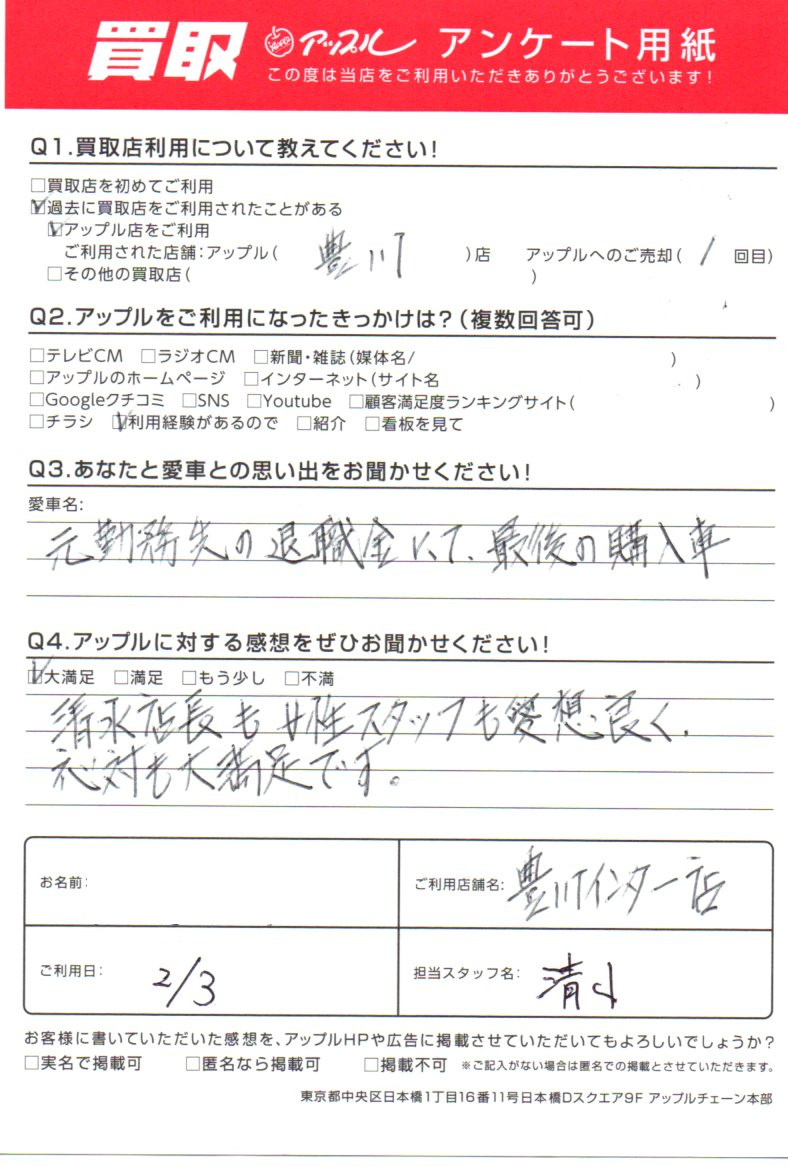 買取 アップル アンケート用紙
この度は当店をご利用いただきありがとうございます!
Q1.買取店利用について教えてください!
□買取店を初めてご利用
☑過去に買取店をご利用されたことがある
☑アップル店をご利用
ご利用された店舗:アップル( 豊川 )店 アップルへのご売却( 1 回目)
□その他の買取店( )
Q2.アップルをご利用になったきっかけは?(複数回答可)
□テレビCM □ラジオCM □新聞・雑誌(媒体名/ )
□アップルのホームページ □インターネット(サイト名 )
□Googleクチコミ □SNS □Youtube □顧客満足度ランキングサイト( )
□チラシ ☑利用経験があるので □紹介 □看板を見て
Q3.あなたと愛車との思い出をお聞かせください!
愛車名:
元勤務先の退職金にて、最後の購入車
Q4.アップルに対する感想をぜひお聞かせください!
☑大満足 □満足 □もう少し □不満
清水店長も女性スタッフも愛想良く、
応対も大満足です。
お名前:
ご利用店舗名: 豊川インター店
ご利用日: 2/3
担当スタッフ名: 清水
お客様に書いていただいた感想を、アップルHPや広告に掲載させていただいてもよろしいでしょうか?
□実名で掲載可 □匿名なら掲載可 □掲載不可 ※ご記入がない場合は匿名での掲載とさせていただきます。
東京都中央区日本橋1丁目16番11号日本橋Dスクエア9F アップルチェーン本部